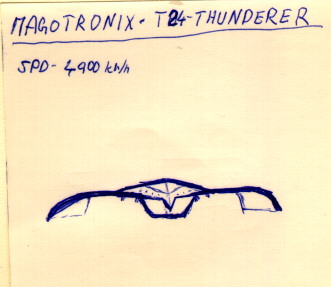 MAGOTRONIX - T24-THUNDERER
SPD- 4,900 km/h